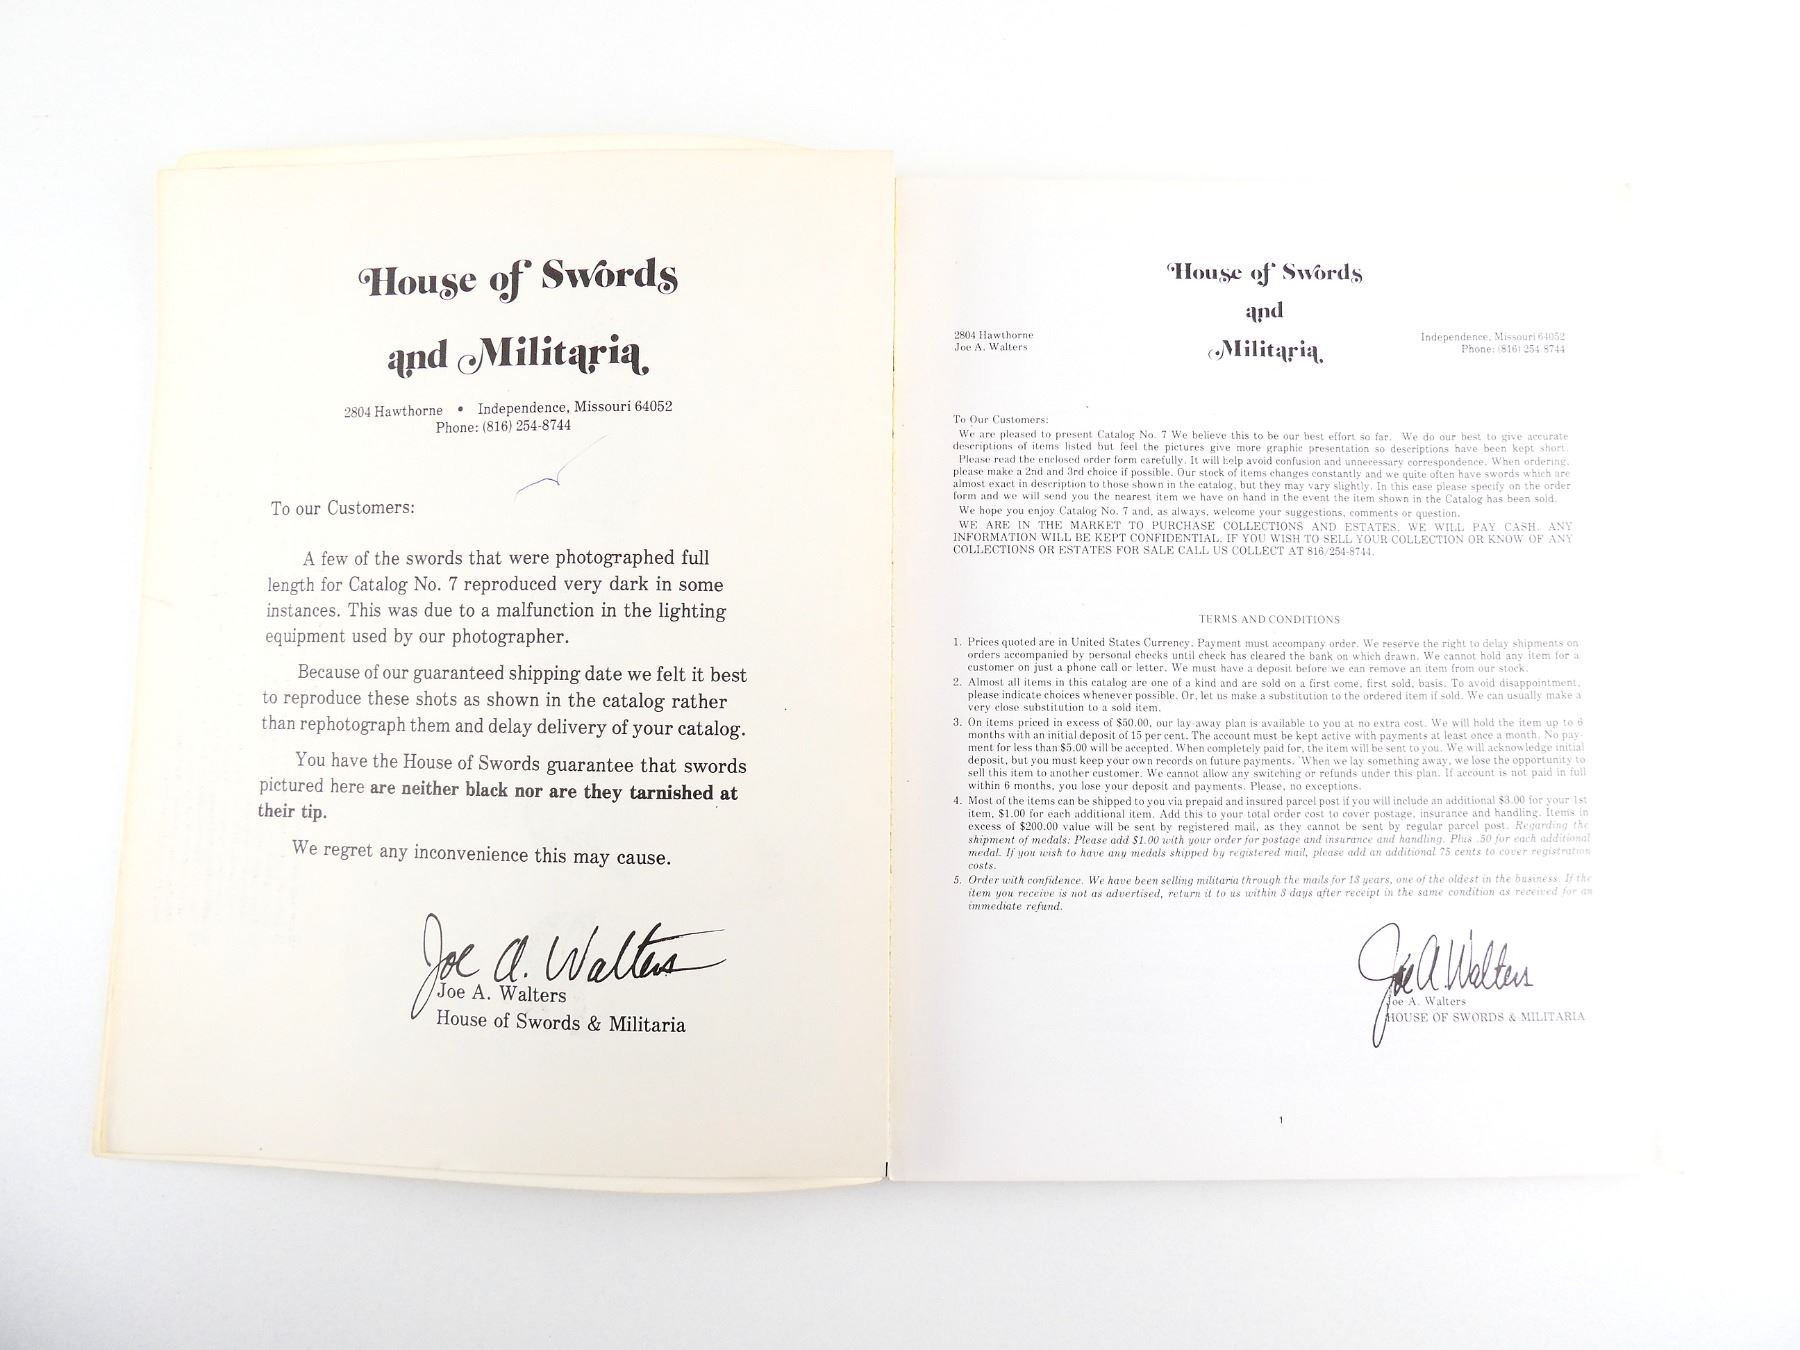 House of Swords
and Militaria
2804 Hawthorne • Independence, Missouri 64052
Phone: (816) 254-8744
To our Customers:
A few of the swords that were photographed full
length for Catalog No. 7 reproduced very dark in some
instances. This was due to a malfunction in the lighting
equipment used by our photographer.
Because of our guaranteed shipping date we felt it best
to reproduce these shots as shown in the catalog rather
than rephotograph them and delay delivery of your catalog.
You have the House of Swords guarantee that swords
pictured here are neither black nor are they tarnished at
their tip.
We regret any inconvenience this may cause.
Joe A. Walters
Joe A. Walters
House of Swords & Militaria
House of Swords
and
Militaria
2804 Hawthorne
Joe A. Walters
Independence, Missouri 64052
Phone: (816) 254-8744
To Our Customers:
We are pleased to present Catalog No. 7 We believe this to be our best effort so far. We do our best to give accurate
descriptions of items listed but feel the pictures give more graphic presentation so descriptions have been kept short.
Please read the enclosed order form carefully. It will help avoid confusion and unnecessary correspondence. When ordering,
please make a 2nd and 3rd choice if possible. Our stock of items changes constantly and we quite often have swords which are
almost exact in description to those shown in the catalog, but they may vary slightly. In this case please specify on the order
form and we will send you the nearest item we have on hand in the event the item shown in the Catalog has been sold.
We hope you enjoy Catalog No. 7 and, as always, welcome your suggestions, comments or question.
WE ARE IN THE MARKET TO PURCHASE COLLECTIONS AND ESTATES. WE WILL PAY CASH. ANY
INFORMATION WILL BE KEPT CONFIDENTIAL. IF YOU WISH TO SELL YOUR COLLECTION OR KNOW OF ANY
COLLECTIONS OR ESTATES FOR SALE CALL US COLLECT AT 816/254-8744.
TERMS AND CONDITIONS
1. Prices quoted are in United States Currency. Payment must accompany order. We reserve the right to delay shipments on
orders accompanied by personal checks until check has cleared the bank on which drawn. We cannot hold any item for a
customer on just a phone call or letter. We must have a deposit before we can remove an item from our stock.
2. Almost all items in this catalog are one of a kind and are sold on a first come, first sold, basis. To avoid disappointment,
please indicate choices whenever possible. Or, let us make a substitution to the ordered item if sold. We can usually make a
very close substitution to a sold item.
3. On items priced in excess of $50.00, our lay-away plan is available to you at no extra cost. We will hold the item up to 6
months with an initial deposit of 15 per cent. The account must be kept active with payments at least once a month. No pay-
ment for less than $5.00 will be accepted. When completely paid for, the item will be sent to you. We will acknowledge initial
deposit, but you must keep your own records on future payments. When we lay something away, we lose the opportunity to
sell this item to another customer. We cannot allow any switching or refunds under this plan. If account is not paid in full
within 6 months, you lose your deposit and payments. Please, no exceptions.
4. Most of the items can be shipped to you via prepaid and insured parcel post if you will include an additional $3.00 for your 1st
item, $1.00 for each additional item. Add this to your total order cost to cover postage, insurance and handling. Items in
excess of $200.00 value will be sent by registered mail, as they cannot be sent by regular parcel post. Regarding the
shipment of medals: Please add $1.00 with your order for postage and insurance and handling. Plus .50 for each additional
medal. If you wish to have any medals shipped by registered mail, please add an additional 75 cents to cover registration
costs.
5. Order with confidence. We have been selling militaria through the mails for 13 years, one of the oldest in the business. If the
item you receive is not as advertised, return it to us within 3 days after receipt in the same condition as received for an
immediate refund.
Joe A. Walters
Joe A. Walters
HOUSE OF SWORDS & MILITARIA
1